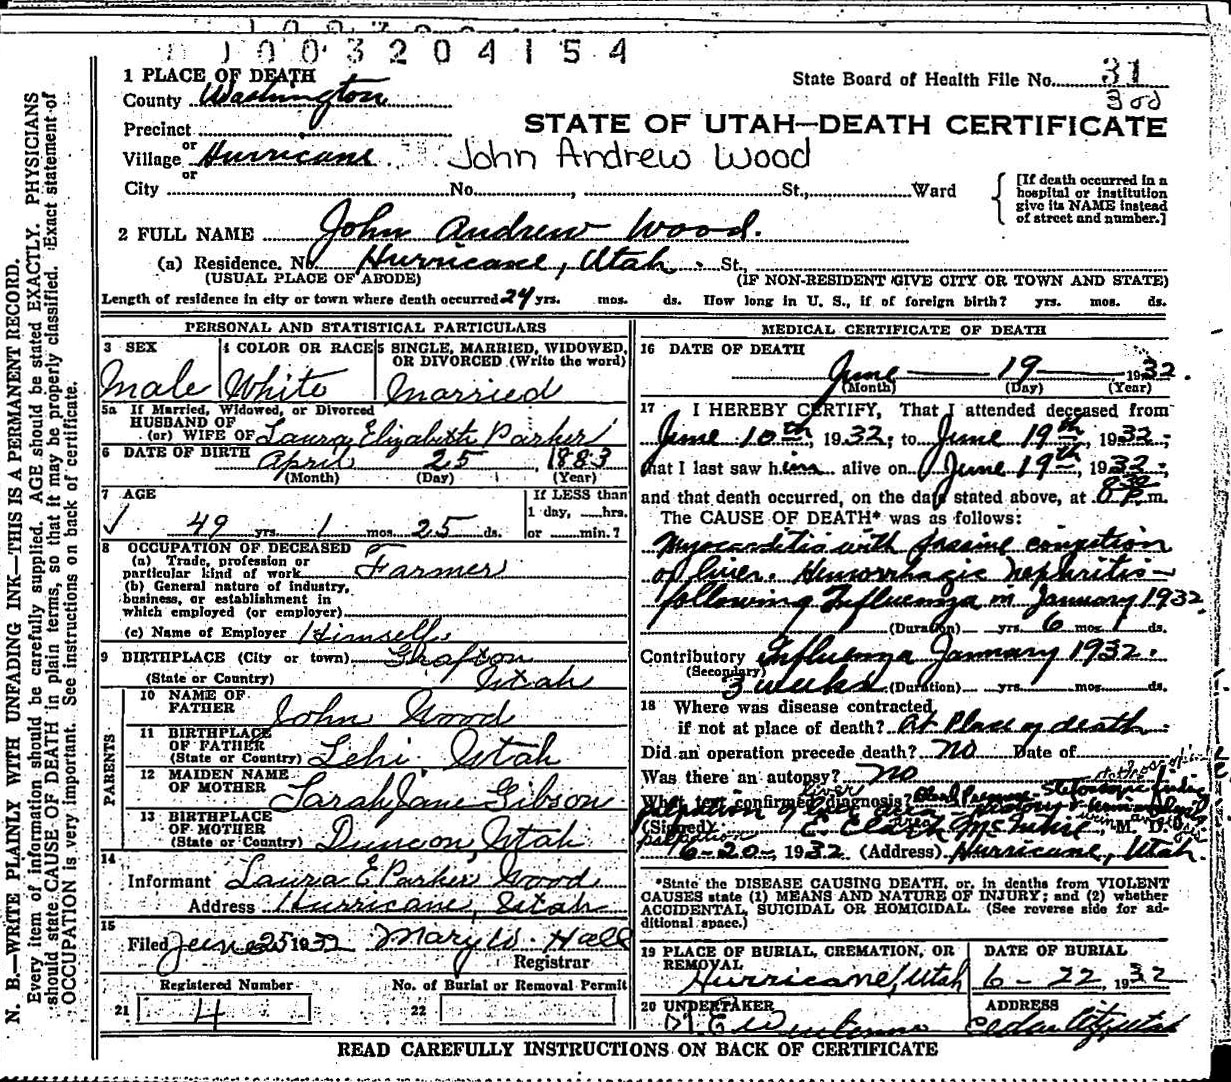 1003204154
1 PLACE OF DEATH
State Board of Health File No. 31
County Washington
300
Precinct
STATE OF UTAH—DEATH CERTIFICATE
or
Village Hurricane John Andrew Wood
or
City No. , St., Ward
[If death occurred in a hospital or institution give its NAME instead of street and number.]
2 FULL NAME John Andrew Wood.
(a) Residence. No. Hurricane, Utah. St.,
(USUAL PLACE OF ABODE) (IF NON-RESIDENT GIVE CITY OR TOWN AND STATE)
Length of residence in city or town where death occurred 24 yrs. mos. ds. How long in U. S., if of foreign birth? yrs. mos. ds.
PERSONAL AND STATISTICAL PARTICULARS
3 SEX
Male
4 COLOR OR RACE
White
5 SINGLE, MARRIED, WIDOWED,
OR DIVORCED (Write the word)
Married
5a If Married, Widowed, or Divorced
HUSBAND OF
(or) WIFE OF Laura Elizabeth Parker
6 DATE OF BIRTH April 25, 1883
(Month) (Day) (Year)
7 AGE
49 yrs. 1 mos. 25 ds.
If LESS than
1 day, hrs.
or min.?
8 OCCUPATION OF DECEASED
(a) Trade, profession or
particular kind of work Farmer
(b) General nature of industry,
business, or establishment in
which employed (or employer)
(c) Name of Employer Himself
9 BIRTHPLACE (City or town) Grafton
(State or Country) Utah
PARENTS
10 NAME OF
FATHER John Wood
11 BIRTHPLACE
OF FATHER
(State or Country) Lehi Utah
12 MAIDEN NAME
OF MOTHER Sarah Jane Gibson
13 BIRTHPLACE
OF MOTHER
(State or Country) Duncan, Utah
14
Informant Laura E Parker Wood
Address Hurricane, Utah
15
Filed June 25 1932 Mary W Hall
Registrar
Registered Number No. of Burial or Removal Permit
21 4 22
MEDICAL CERTIFICATE OF DEATH
16 DATE OF DEATH
June 19 1932.
(Month) (Day) (Year)
17 I HEREBY CERTIFY, That I attended deceased from
June 10th, 1932, to June 19th, 1932,
that I last saw him alive on June 19th, 1932,
and that death occurred, on the date stated above, at P.m.
The CAUSE OF DEATH* was as follows:
Myocarditis with passive congestion
of liver. Hemorrhagic Nephritis
following Influenza in January 1932.
(Duration) yrs. 6 mos. ds.
Contributory Influenza January 1932.
(Secondary)
3 weeks (Duration) yrs. mos. ds.
18 Where was disease contracted
if not at place of death? At Place of death
Did an operation precede death? no Date of
Was there an autopsy? no
What test confirmed diagnosis? Blood Pressure
palpation of liver area
(Signed) , M. D.
6-20-, 1932 (Address) Hurricane, Utah.
*State the DISEASE CAUSING DEATH, or, in deaths from VIOLENT
CAUSES state (1) MEANS AND NATURE OF INJURY; and (2) whether
ACCIDENTAL, SUICIDAL OR HOMICIDAL. (See reverse side for ad-
ditional space.)
19 PLACE OF BURIAL, CREMATION, OR
REMOVAL
Hurricane, Utah
DATE OF BURIAL
6-22, 1932
20 UNDERTAKER
ADDRESS
Cedar City, Utah
READ CAREFULLY INSTRUCTIONS ON BACK OF CERTIFICATE
N. B.—WRITE PLAINLY WITH UNFADING INK—THIS IS A PERMANENT RECORD.
Every item of information should be carefully supplied. AGE should be stated EXACTLY. PHYSICIANS
should state CAUSE OF DEATH in plain terms, so that it may be properly classified. Exact statement of
OCCUPATION is very important. See instructions on back of certificate.